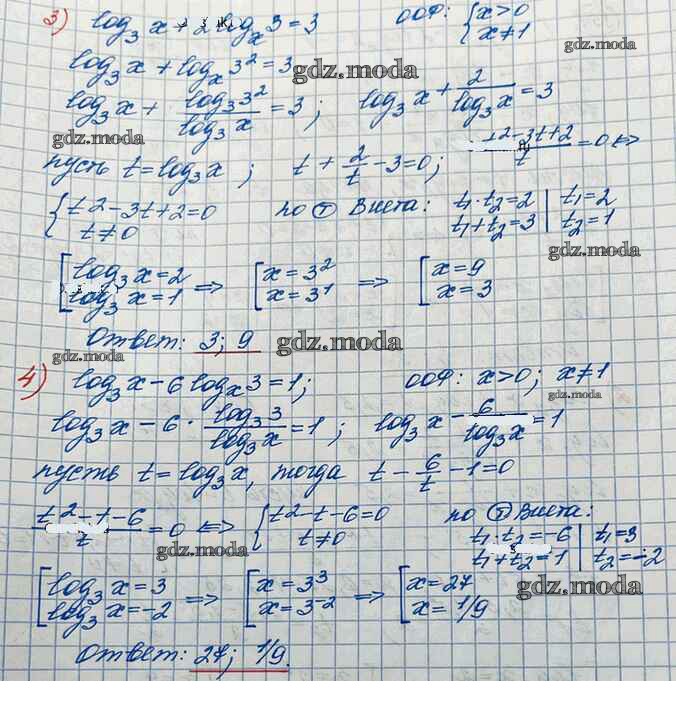 3) log₃ x + 2 logₓ 3 = 3   ООФ: { x > 0   x ≠ 1
log₃ x + logₓ 3² = 3
gdz.moda
log₃ x + log₃ 3² / log₃ x = 3 ; log₃ x + 2 / log₃ x = 3
gdz.moda
пусть t = log₃ x ; t + 2/t - 3 = 0; t² - 3t + 2 / t = 0 ⇔
gdz.moda
{ t² - 3t + 2 = 0   t ≠ 0   по Ⓣ Виета: t₁ · t₂ = 2   t₁ + t₂ = 3 | t₁ = 2   t₂ = 1
gdz.moda
[ log₃ x = 2   log₃ x = 1 ⇒ [ x = 3²   x = 3¹ ⇒ [ x = 9   x = 3
Ответ: 3; 9
gdz.moda
gdz.moda
4) log₃ x - 6 logₓ 3 = 1; ООФ: x > 0; x ≠ 1
gdz.moda
log₃ x - 6 · log₃ 3 / log₃ x = 1 ; log₃ x - 6 / log₃ x = 1
пусть t = log₃ x, тогда t - 6/t - 1 = 0
t² - t - 6 / t = 0 ⇔ { t² - t - 6 = 0   t ≠ 0   по Ⓣ Виета: t₁ · t₂ = -6   t₁ + t₂ = 1 | t₁ = 3   t₂ = -2
gdz.moda
[ log₃ x = 3   log₃ x = -2 ⇒ [ x = 3³   x = 3⁻² ⇒ [ x = 27   x = 1/9
gdz.moda
Ответ: 27; 1/9.